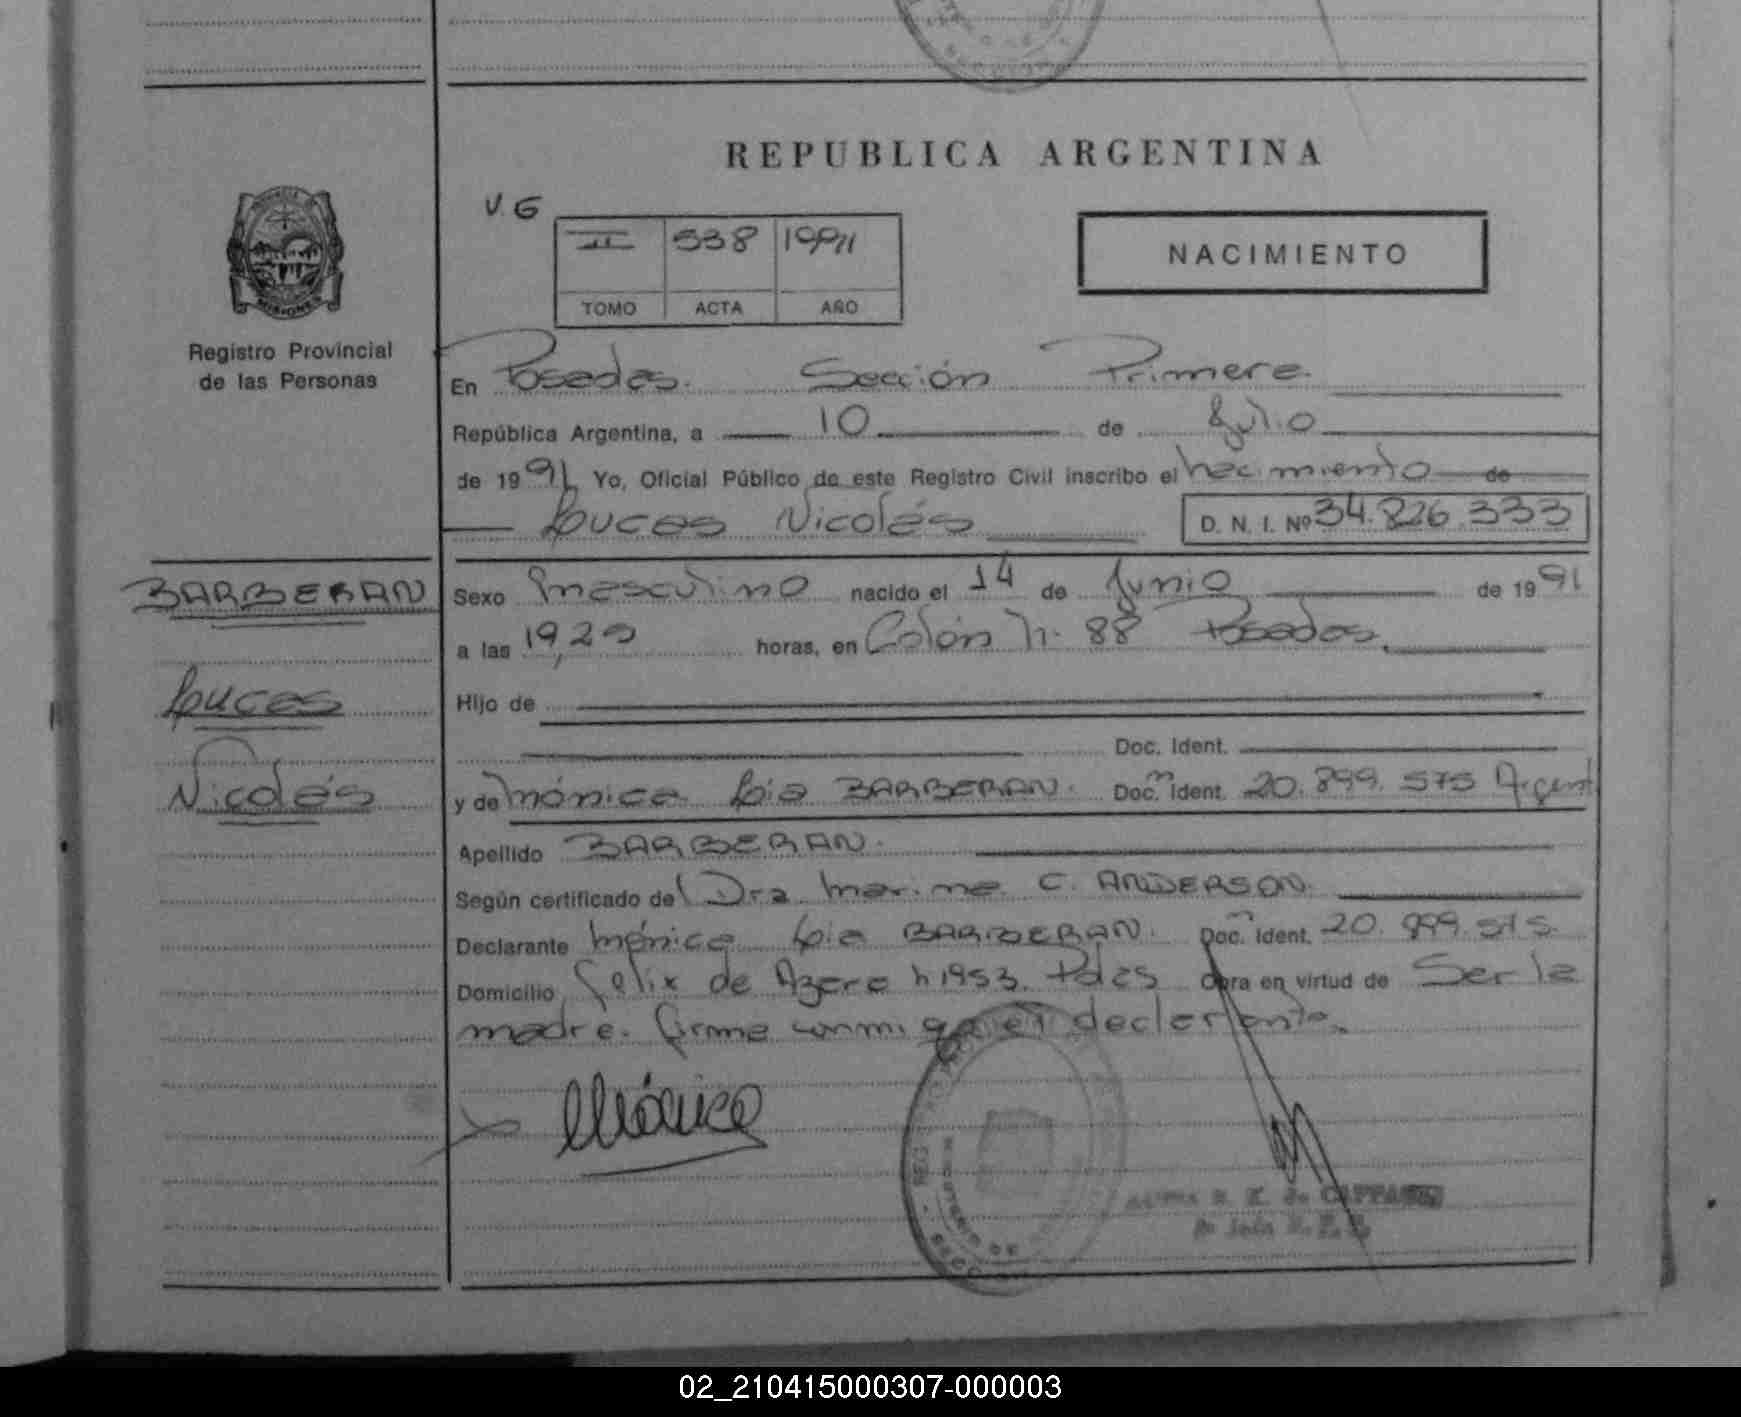 REPUBLICA ARGENTINA
V. G
II 538 1991
TOMO ACTA AÑO
NACIMIENTO
MISIONES
Registro Provincial
de las Personas
En Posadas. Sección Primera.
República Argentina, a 10 de Julio
de 1991 Yo, Oficial Público de este Registro Civil inscribo el nacimiento de
Lucas Nicolás
D. N. I. Nº 34.826.333
BARBERAN
Sexo masculino nacido el 14 de Junio de 1991
a las 19,25 horas, en Colón n. 88 Posadas.
Lucas
Hijo de
Doc. Ident.
Nicolás
y de Mónica Lia BARBERAN. Doc. Ident. 20.899.575 Argent
Apellido BARBERAN.
Según certificado de Dra C. ANDERSON.
Declarante Mónica Lia BARBERAN. Doc. Ident. 20.899.575.
Domicilio Felix de Azara n 1953. Pdas Obra en virtud de Ser la
madre. firma conmigo el declarante.
Mónica
02_210415000307-000003